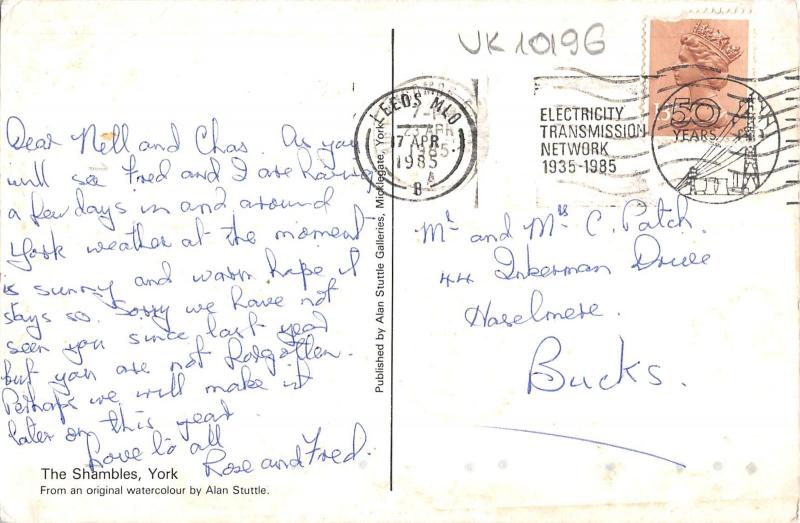 UK 1019G
LEEDS MLO
7-
23 APR
17 APR
1985
1985
B
ELECTRICITY
TRANSMISSION
NETWORK
1935-1985
50
YEARS
Dear Nell and Chas. As you
will see Fred and I are having
a few days in and around
York weather at the moment
is sunny and warm hope it
stays so. Sorry we have not
seen you since last year
but you are not forgotten.
Perhaps we will make it
later on this year.
Love to all
Rose and Fred.
The Shambles, York
From an original watercolour by Alan Stuttle.
Published by Alan Stuttle Galleries, Micklegate, York
Mr and Mrs C. Patch.
44 Inkerman Drive
Haselmere.
Bucks.